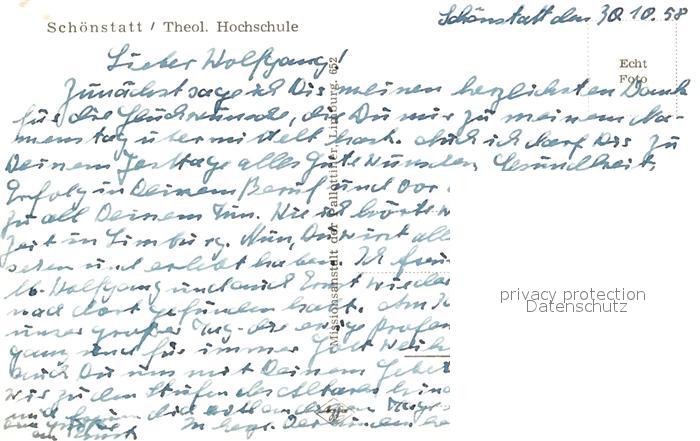 Schönstatt / Theol. Hochschule
Schönstatt den 30.10.58
Echt
Foto
Lieber Wolfgang!
Zunächst sage ich Dir meinen herzlichsten Dank
für die Glückwünsche, die Du mir zu meinem Na-
menstag übermittelt hast. Auch ich darf Dir zu
Deinem Festtage alles Gute wünschen, Gesundheit,
Erfolg in Deinem Beruf und vor
zu all Deinem Tun. Wie ich hörte
Zeit in Limburg. Nun, Du wirst all
sehen und erlebt haben. Ich freu
lb. Wolfgang und auch Ernst wieder
nach dort gefunden hast. Am
unser großer Tag - die ewige Profess
ganz und für immer Gott weih
auch Du uns mit Deinem Gebet
wir zu den Stufen des Altares hin
und
ein großer
an Ernst
In
Missionsanstalt der Pallottiner, Limburg. 652
privacy protection
Datenschutz